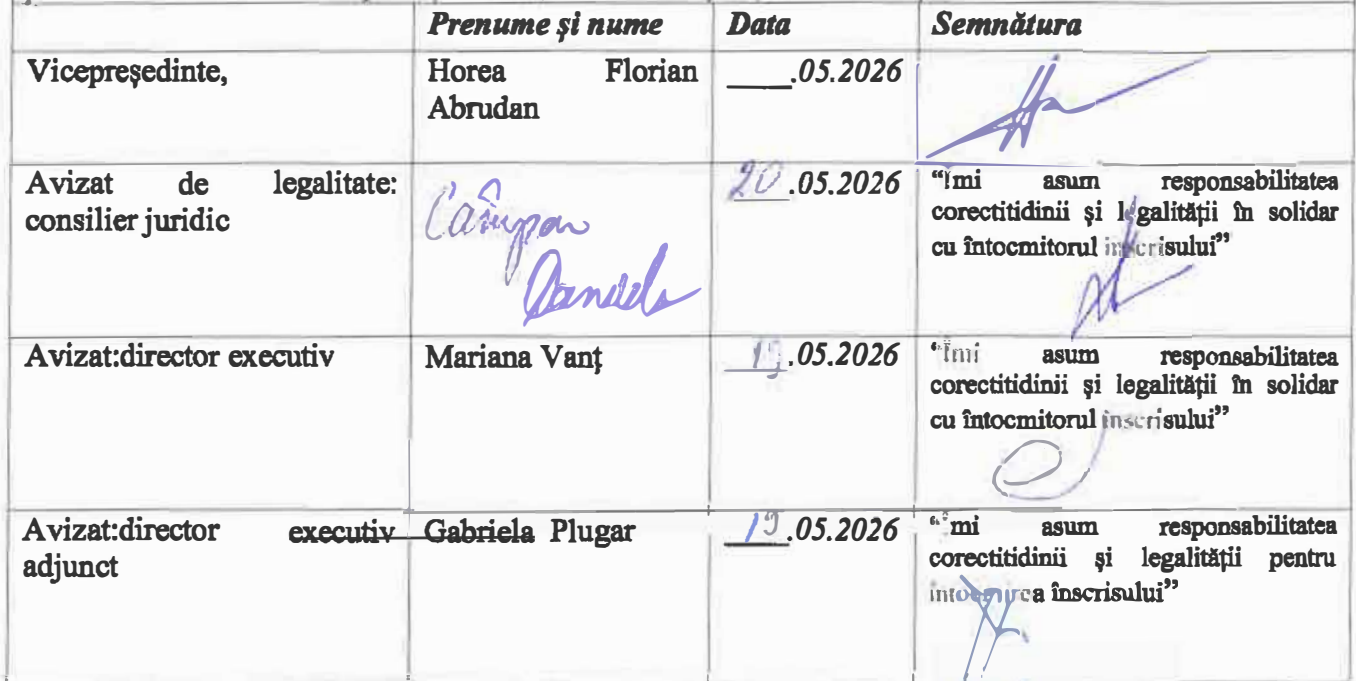 Prenume și nume Data Semnătura
Vicepreședinte, Horea Florian ____.05.2026
Abrudan
Avizat de legalitate: 20.05.2026 “Îmi asum responsabilitatea
consilier juridic Câmpan corectitidinii și legalității în solidar
cu întocmitorul înscrisului”
Daniela
Avizat:director executiv Mariana Vanț 19.05.2026 “Îmi asum responsabilitatea
corectitidinii și legalității în solidar
cu întocmitorul înscrisului”
Avizat:director executiv Gabriela Plugar 19.05.2026 “Îmi asum responsabilitatea
adjunct corectitidinii și legalității pentru
întocmirea înscrisului”